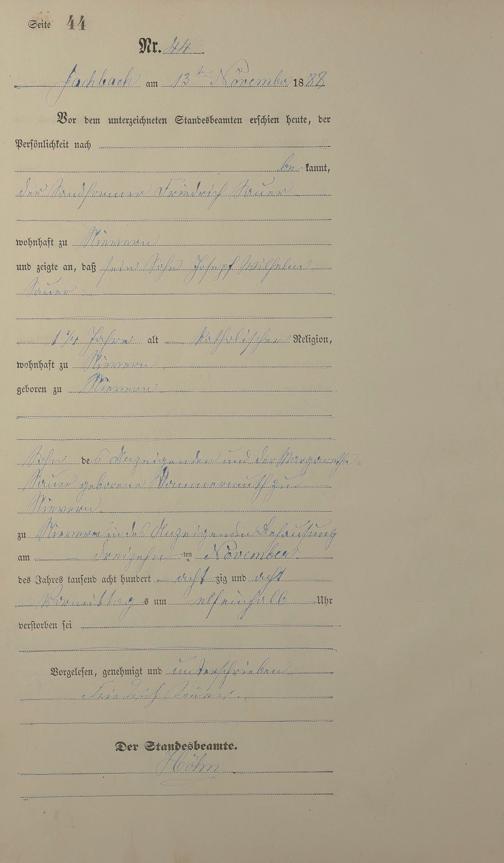 Seite 44
Nr. 44
Fachbach am 13ten November 1888
Vor dem unterzeichneten Standesbeamten erschien heute, der
Persönlichkeit nach
be kannt,
der Sandformer Friedrich Sauer
wohnhaft zu Nievern
und zeigte an, daß sein Sohn Joseph Wilhelm
Sauer
1 3/4 Jahre alt katholischer Religion,
wohnhaft zu Nievern
geboren zu Nievern
Sohn des Anzeigenden und der Margaretha
Sauer geborene zu
Nievern
zu Nievern in des Anzeigenden Behausung
am dreizehn ten November
des Jahres tausend acht hundert acht zig und acht
Vormittag s um elfeinhalb Uhr
verstorben sei
Vorgelesen, genehmigt und unterschrieben
Friedrich Sauer
Der Standesbeamte.
Höhn